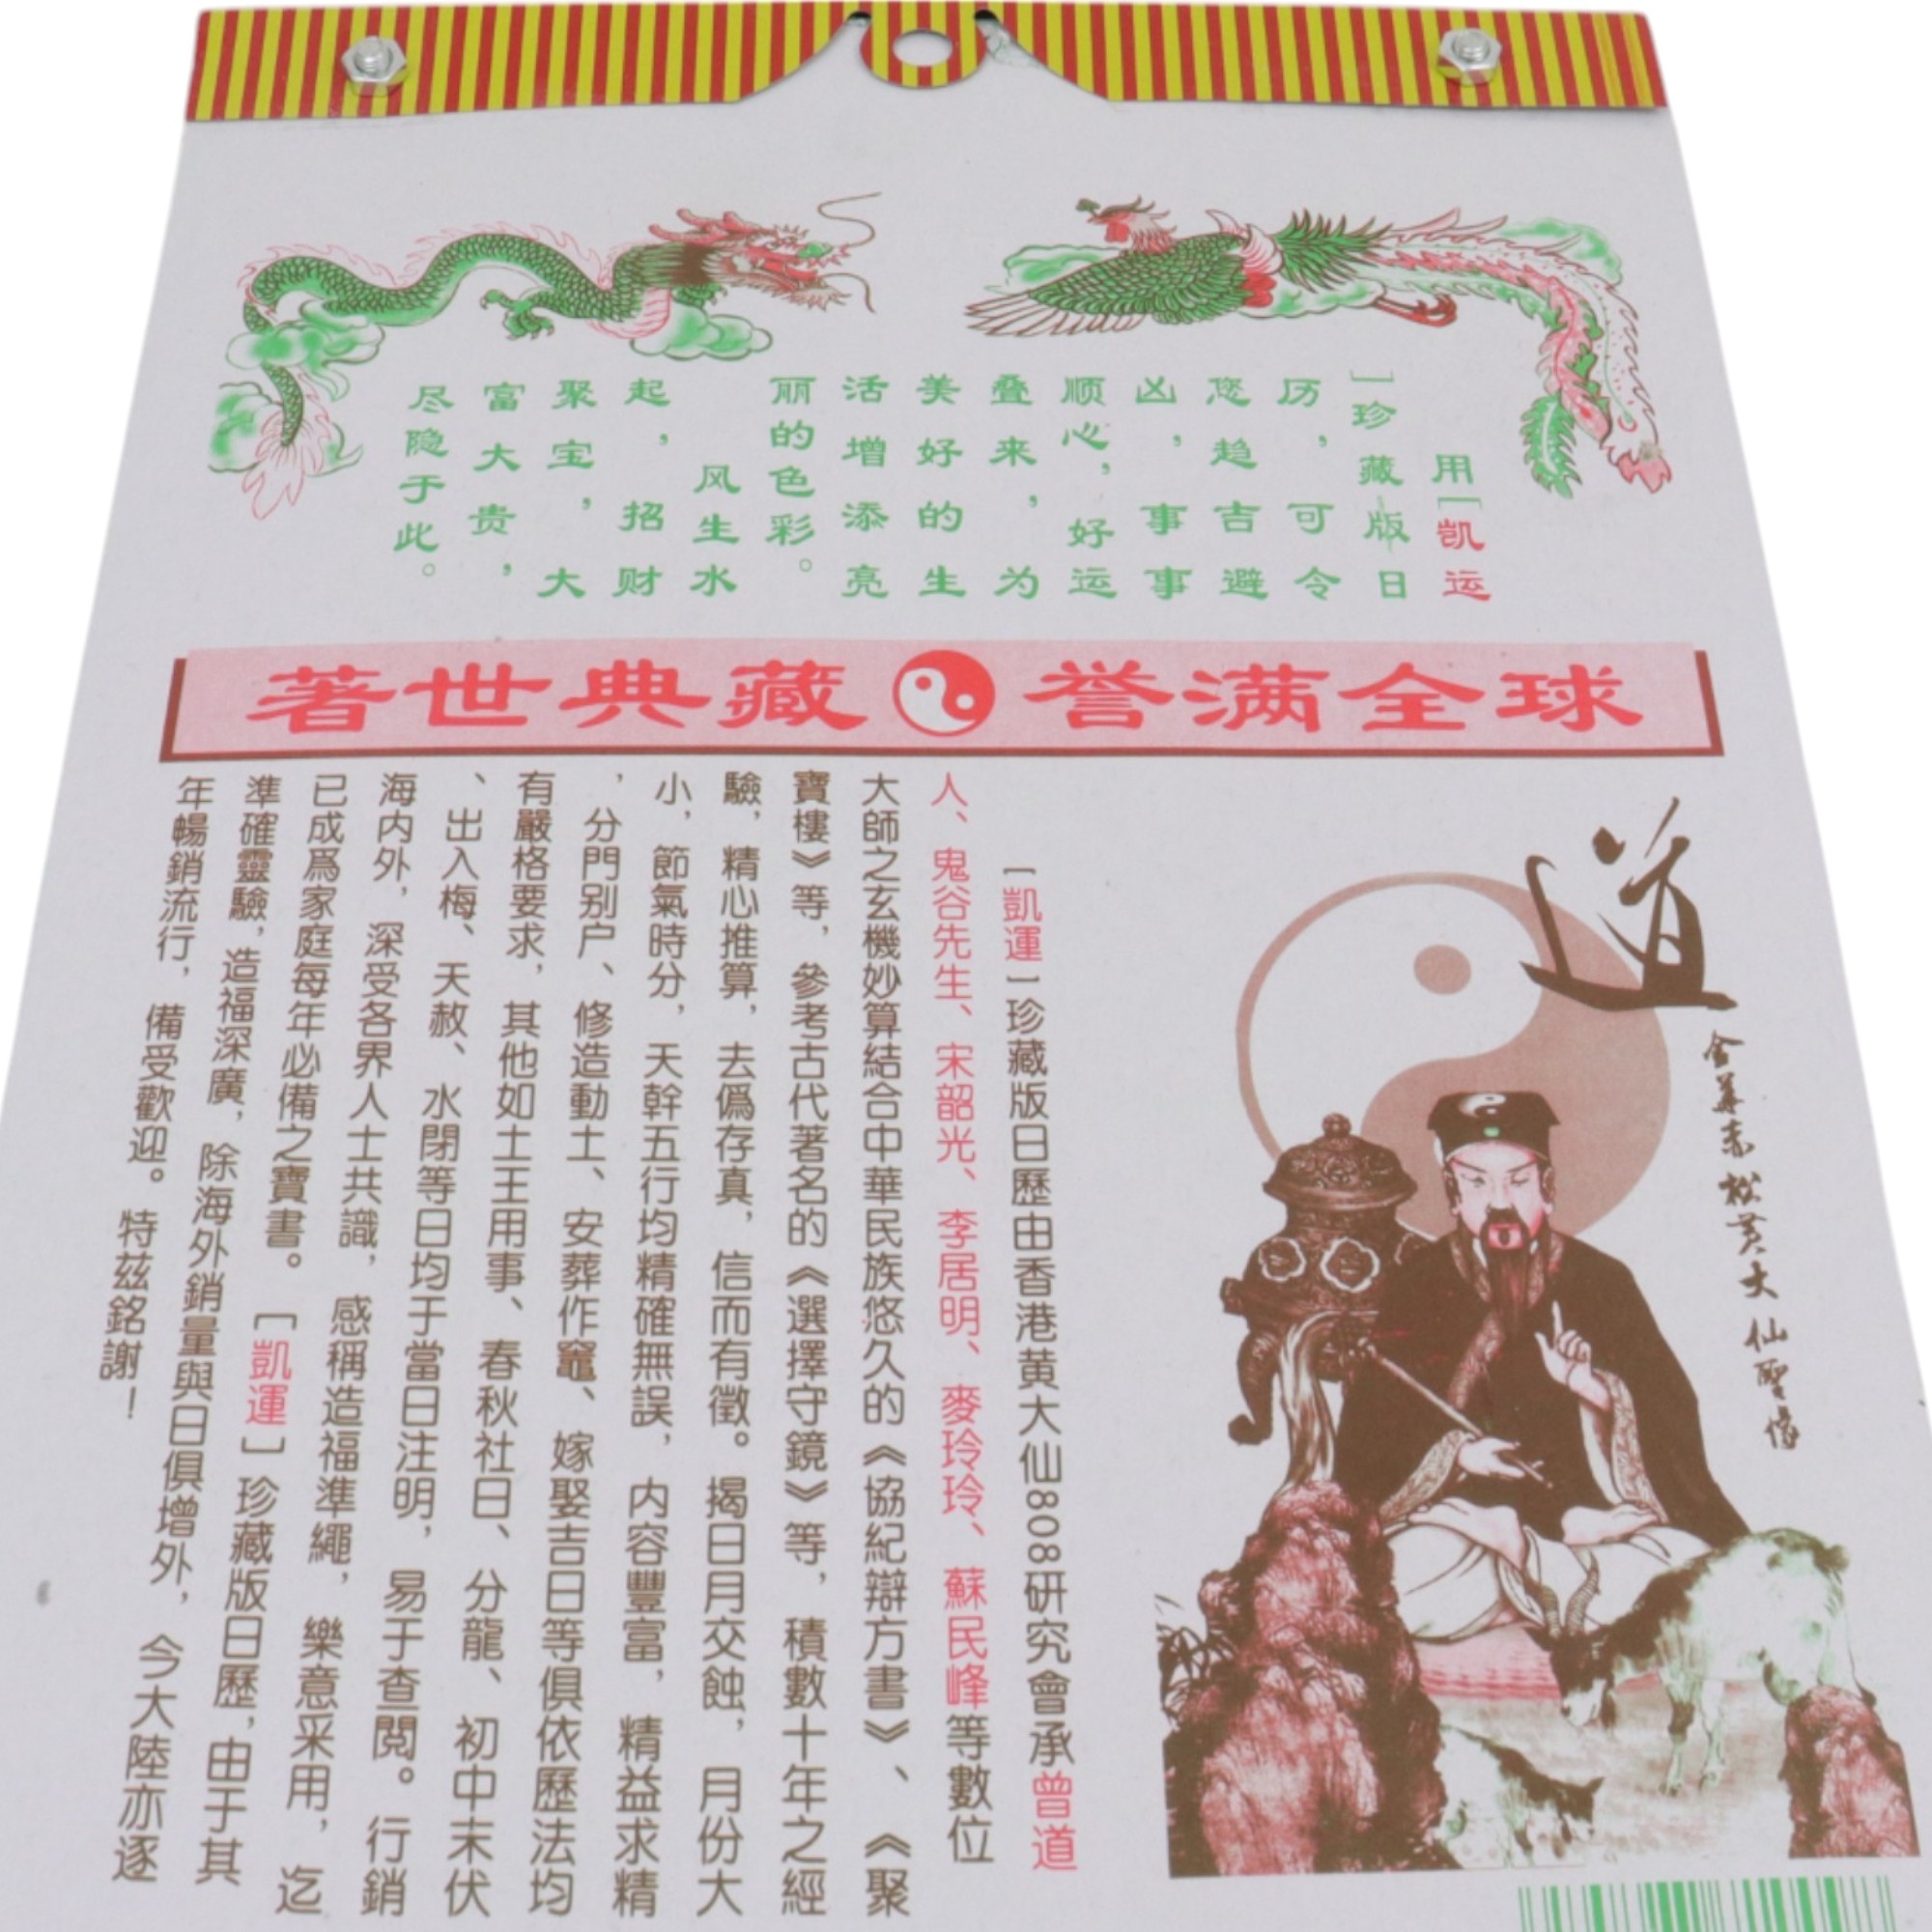 用［凯运
］珍藏版日
历，可令
您趋吉避
凶，事事
顺心，好运
叠来，为
美好的生
活增添亮
丽的色彩。
风生水
起，招财
聚宝，大
富大贵，
尽隐于此。
著世典藏 誉满全球
道
金華赤松黃大仙聖像
［凱運］珍藏版日歷由香港黄大仙808研究會承曾道
人、鬼谷先生、宋韶光、李居明、麥玲玲、蘇民峰等數位
大師之玄機妙算結合中華民族悠久的《協紀辯方書》、《聚
寶樓》等，參考古代著名的《選擇守鏡》等，積數十年之經
驗，精心推算，去僞存真，信而有徵。揭日月交蝕，月份大
小，節氣時分，天幹五行均精確無誤，内容豐富，精益求精
，分門别户、修造動土、安葬作竈、嫁娶吉日等俱依歷法均
有嚴格要求，其他如土王用事、春秋社日、分龍、初中末伏
、出入梅、天赦、水閉等日均于當日注明，易于查閲。行銷
海内外，深受各界人士共識，感稱造福準繩，樂意采用，迄
已成爲家庭每年必備之寶書。［凱運］珍藏版日歷，由于其
準確靈驗，造福深廣，除海外銷量與日俱增外，今大陸亦逐
年暢銷流行，備受歡迎。特兹銘謝！